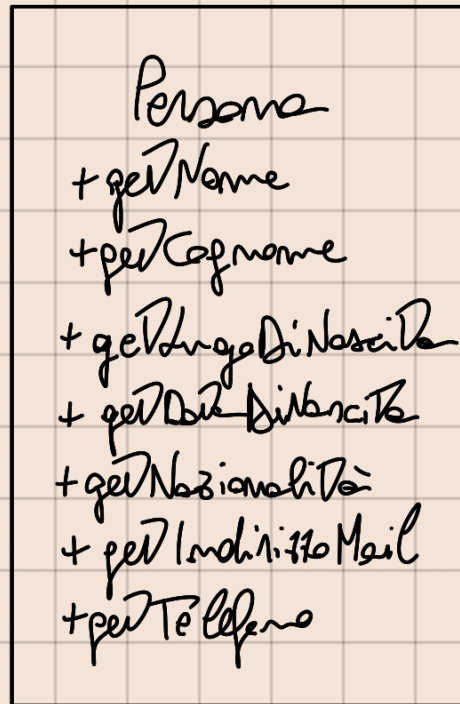 Persona
+ getNome
+ getCognome
+ getLuogoDiNascita
+ getDataDiNascita
+ getNazionalità
+ getIndirizzoMail
+ getTelefono